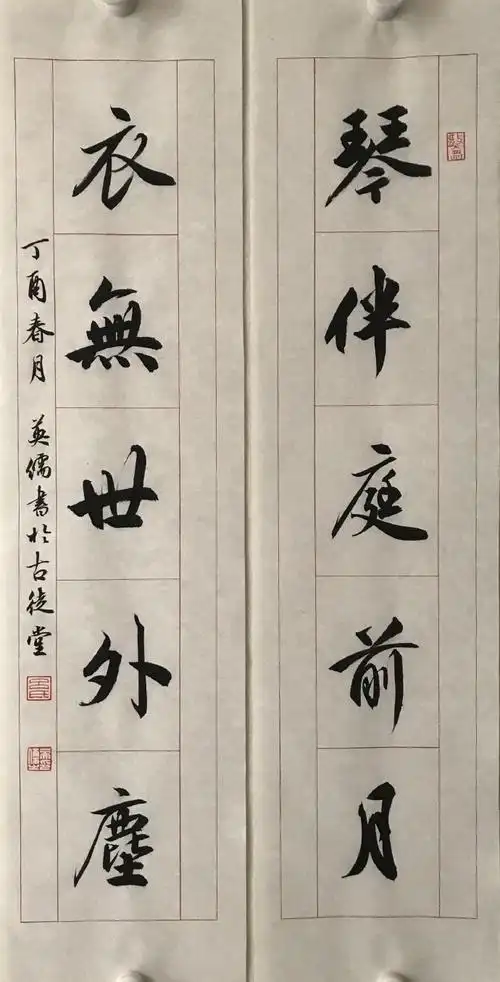 琴伴庭前月
衣無世外塵
丁酉春月 英儒書於古徒堂